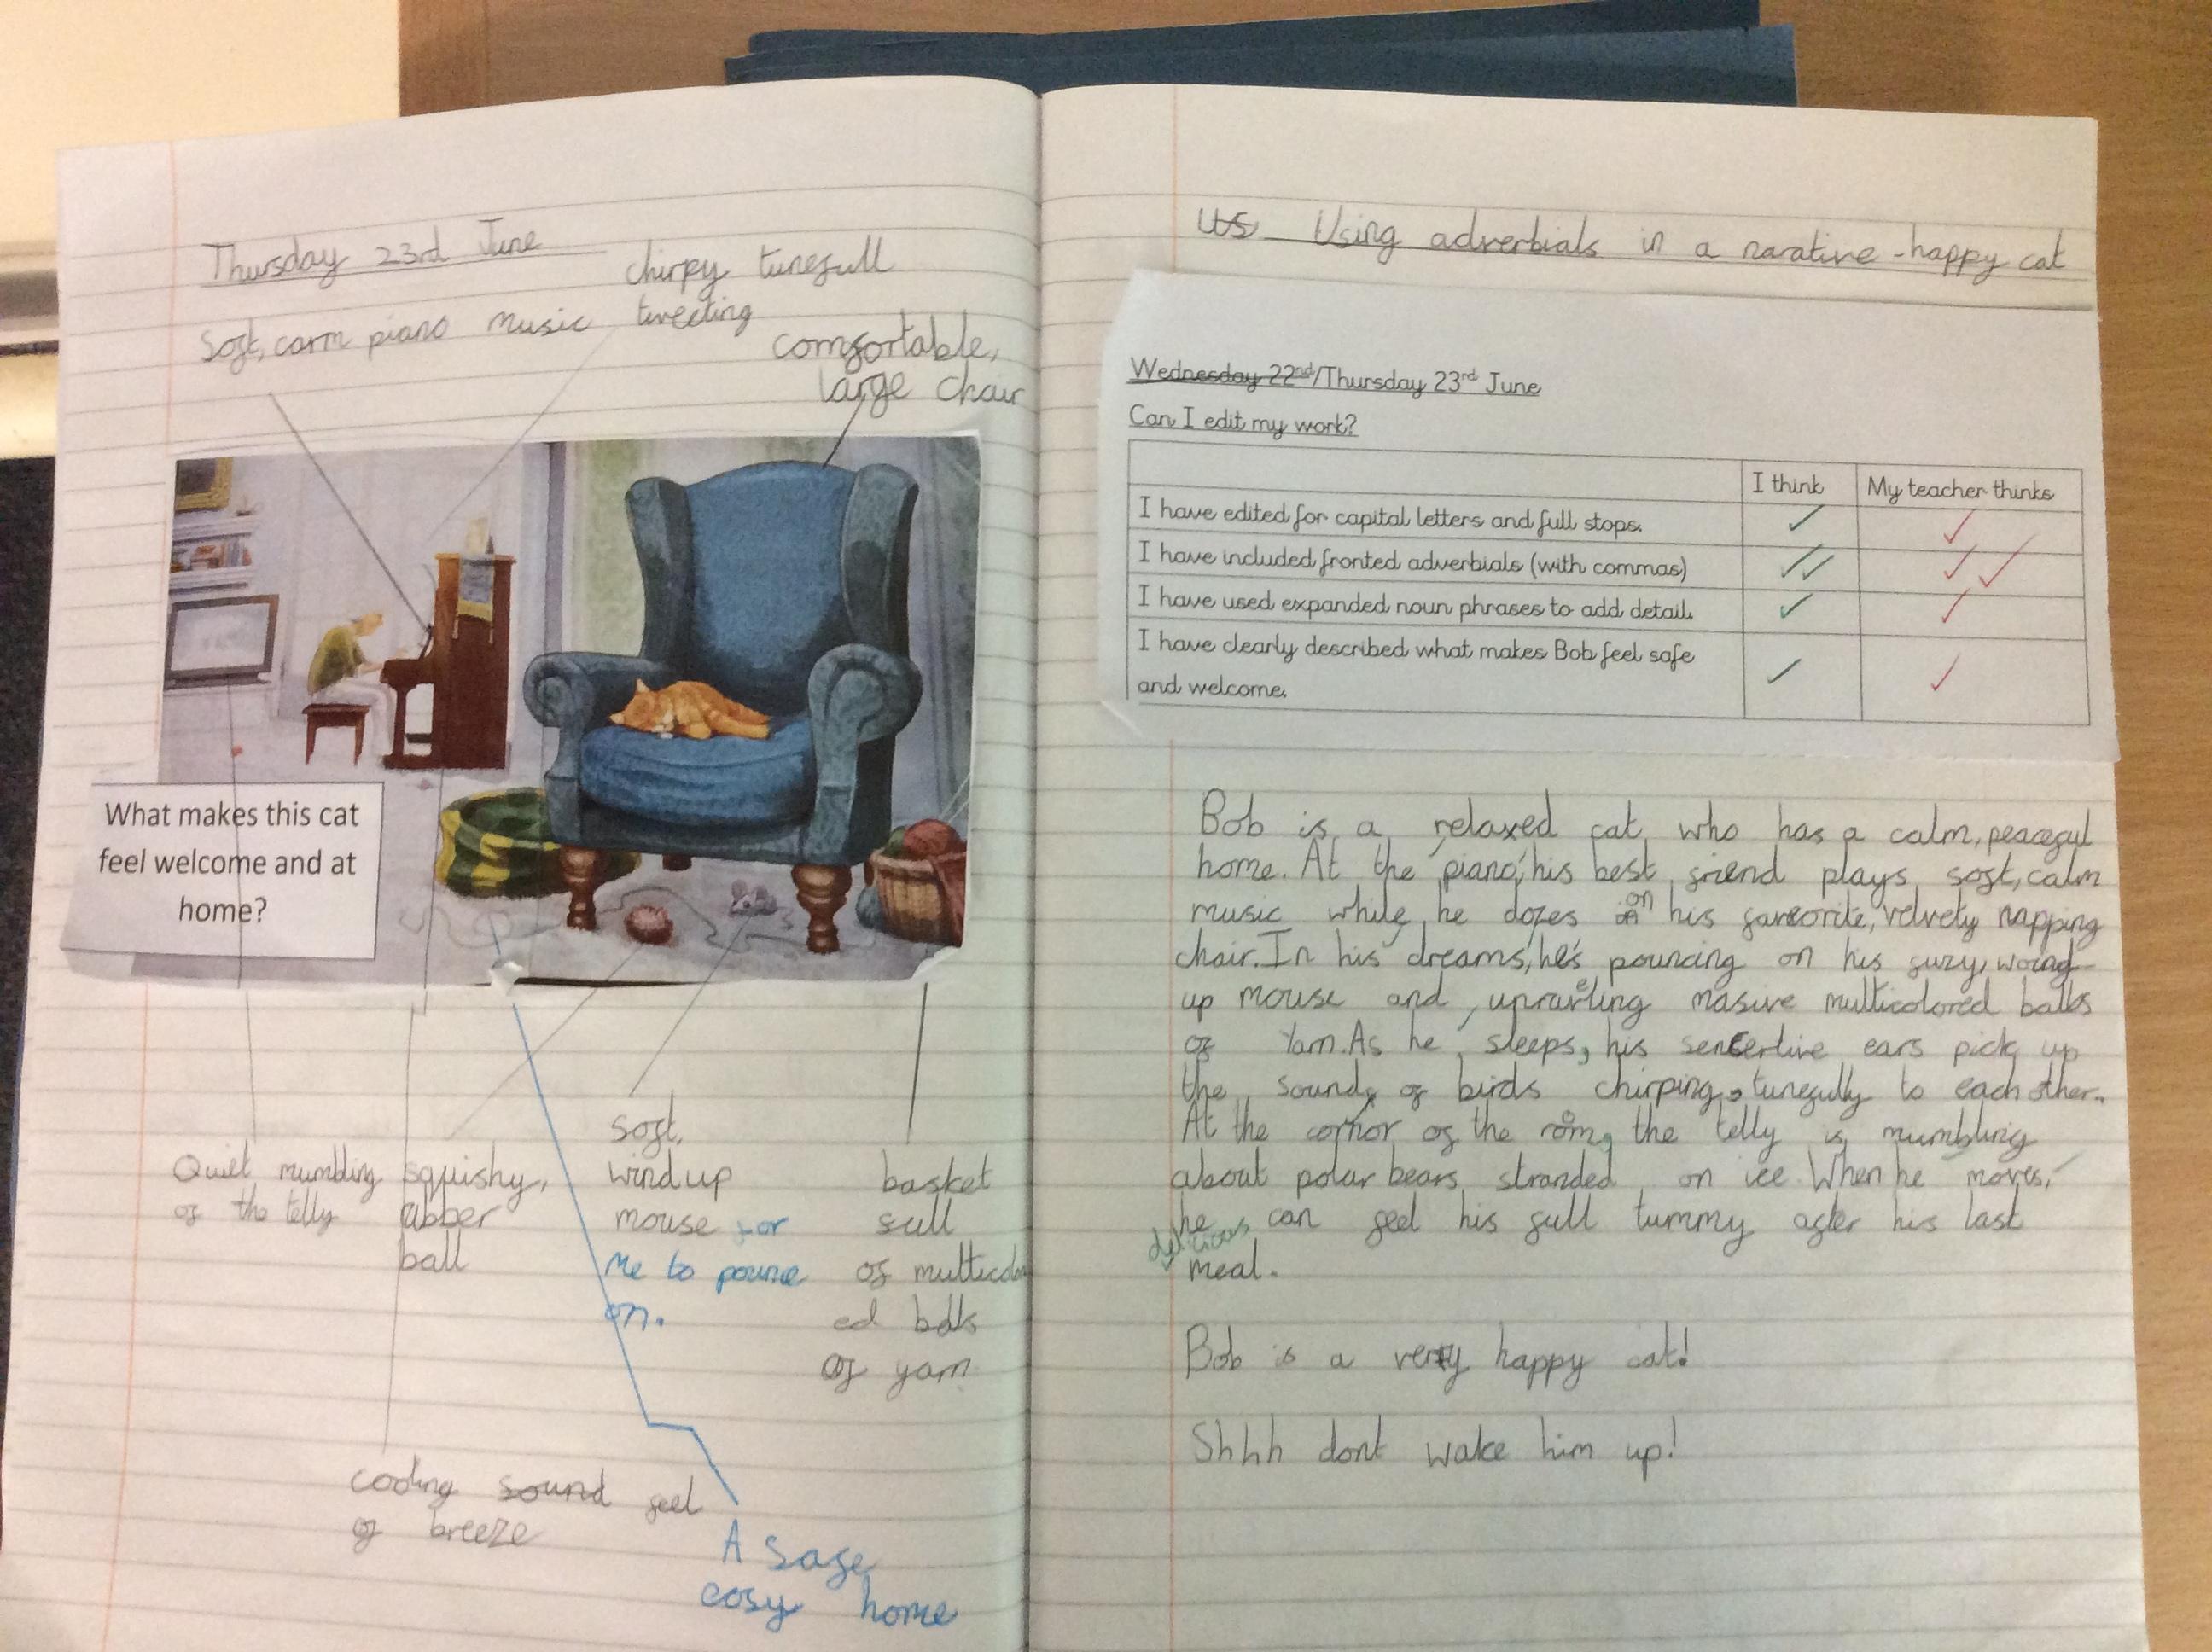 Thursday 23rd June
chirpy tunefull
tweeting
Soft, carm piano music
comfortable,
large chair
What makes this cat
feel welcome and at
home?
Quiet mumbling
of the telly
squishy,
ubber
ball
soft,
wind up
mouse for
me to pounce
on.
basket
full
of multicolor
ed balls
of yarn
cooling sound feel
of breeze
A safe
cosy home
us Using adverbials in a narative - happy cat
Wednesday 22nd/Thursday 23rd June
Can I edit my work?
I think
My teacher thinks
I have edited for capital letters and full stops.
I have included fronted adverbials (with commas)
I have used expanded noun phrases to add detail.
I have clearly described what makes Bob feel safe
and welcome.
Bob is a relaxed cat who has a calm, peaceful
home. At the piano, his best friend plays soft, calm
music while he dozes on his, velvety napping
chair. In his dreams, he's pouncing on his fuzy,
up mouse and unraveling masive multicolored balls
of Yarn. As he sleeps, his ears pick up
the sounds of birds chirping, tunefully to each other.
At the cornor of the room, the telly is mumbling
about polar bears stranded on ice. When he moves,
he can feel his full tummy after his last
delicious
meal.
Bob is a very happy cat!
Shhh dont wake him up!